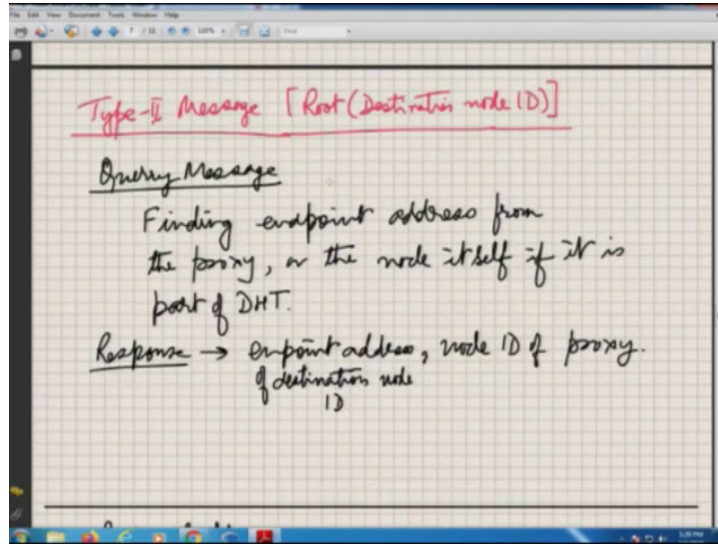 File Edit View Document Tools Window Help
7 / 11 100% Find
Type-II Message [Root (Destination node ID)]
Querry Message
Finding endpoint address from
the proxy, or the node itself if it is
part of DHT.
Response → enpoint address, node ID of proxy.
of destination node
ID
5:28 PM